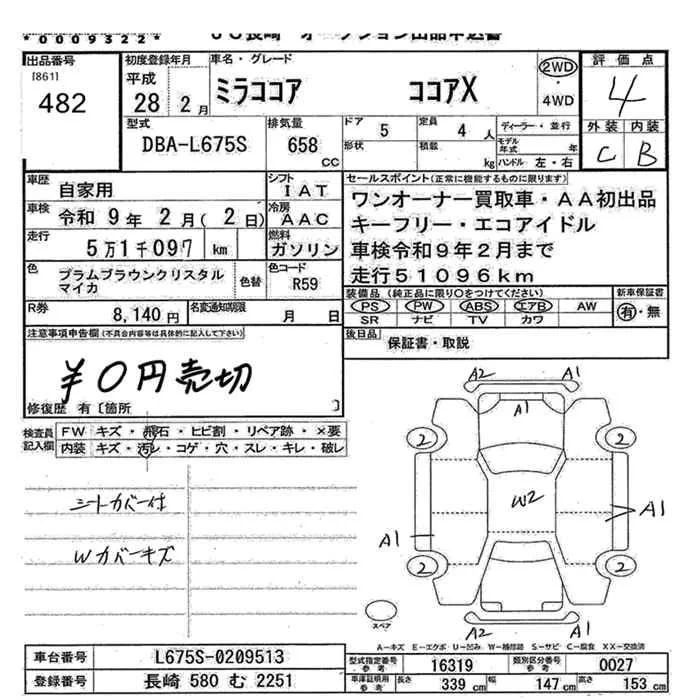 *0009322*
JU長崎 オークション出品申込書
出品番号 [861] 482
初度登録年月 平成 28年 2月
車名・グレード ミラココア ココアX
2WD・4WD
評価点 4
外装 C 内装 B
型式 DBA-L675S
排気量 658 CC
ドア 5 形状
定員 4人 積載 kg
ディーラー・並行
モデル年式 年
ハンドル 左・右
車歴 自家用
シフト IAT
車検 令和 9年 2月( 2日)
冷房 AAC
走行 5万1千097 km
燃料 ガソリン
色 プラムブラウンクリスタルマイカ 色替
色コード R59
R券 8,140円
名変通知期限 月 日
セールスポイント(正常に機能するものに限ります)
ワンオーナー買取車・AA初出品
キーフリー・エコアイドル
車検令和9年2月まで
走行51096km
装備品(純正品に限り○をつけてください)
PS PW ABS エアB AW
SR ナビ TV カワ
新車保証書 有・無
後日品 保証書・取説
注意事項申告欄(不具合内容等は具体的に記入して下さい)
¥0円売切
修復歴 有〔箇所 〕
検査員記入欄
FW キズ・飛石・ヒビ割・リペア跡・×要
内装 キズ・汚レ・コゲ・穴・スレ・キレ・破レ
シートカバー付
Wカバーキズ
A2 A1
A1
2 2
W2
A1 A1
2 2
A2 A1
スペア
A-キズ E-エクボ U-凹み W-補修跡 S-サビ C-腐食 XX-交換済
車台番号 L675S-0209513
登録番号 長崎 580 む 2251
型式指定番号 参考 16319
類別区分番号 参考 0027
車庫証明用 参考 長さ 339 cm 幅 147 cm 高さ 153 cm